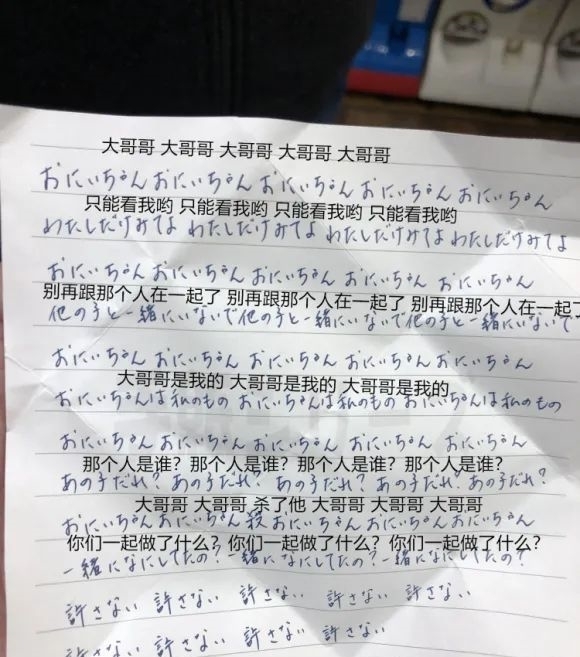 大哥哥 大哥哥 大哥哥 大哥哥 大哥哥
おにいちゃん おにいちゃん おにいちゃん おにいちゃん おにいちゃん
只能看我哟 只能看我哟 只能看我哟 只能看我哟
わたしだけみてよ わたしだけみてよ わたしだけみてよ わたしだけみてよ
おにいちゃん おにいちゃん おにいちゃん おにいちゃん おにいちゃん
别再跟那个人在一起了 别再跟那个人在一起了 别再跟那个人在一起了
他の子と一緒にいないで他の子と一緒にいないで他の子と一緒にいないで
おにいちゃん おにいちゃん おにいちゃん おにいちゃん おにいちゃん
大哥哥是我的 大哥哥是我的 大哥哥是我的
おにいちゃんは私のもの おにいちゃんは私のもの おにいちゃんは私のもの
おにいちゃん おにいちゃん おにいちゃん おにいちゃん おにいちゃん
那个人是谁? 那个人是谁? 那个人是谁? 那个人是谁?
あの子だれ? あの子だれ? あの子だれ? あの子だれ? あの子だれ?
大哥哥 大哥哥 杀了他 大哥哥 大哥哥 大哥哥
おにいちゃん おにいちゃん 殺 おにいちゃん おにいちゃん おにいちゃん
你们一起做了什么? 你们一起做了什么? 你们一起做了什么?
一緒になにしてたの? 一緒になにしてたの? 一緒になにしてたの?
許さない 許さない 許さない 許さない 許さない
許さない 許さない 許さない 許さない